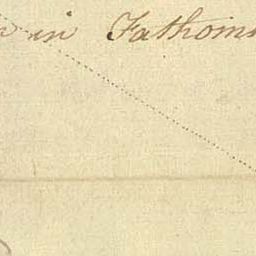 in Fathoms